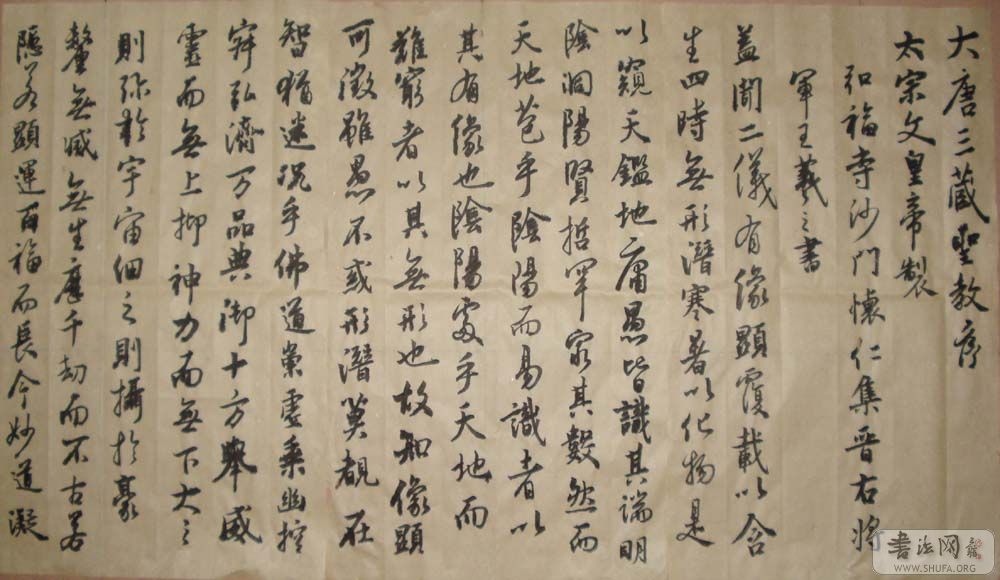 大唐三藏聖教序
太宗文皇帝製
弘福寺沙門懷仁集晉右将
軍王羲之書
蓋聞二儀有像顯覆載以含
生四時無形潛寒暑以化物是
以窺天鑑地庸愚皆識其端明
陰洞陽賢哲罕窮其數然而
天地苞乎陰陽而易識者以
其有像也陰陽處乎天地而
難窮者以其無形也故知像顯
可徵雖愚不惑形潛莫覩在
智猶迷況乎佛道崇虛乘幽控
寂弘濟万品典御十方舉威
靈而無上抑神力而無下大之
則弥於宇宙細之則攝於豪
釐無滅無生歷千劫而不古若
隱若顯運百福而長今妙道凝
書法网
WWW.SHUFA.ORG